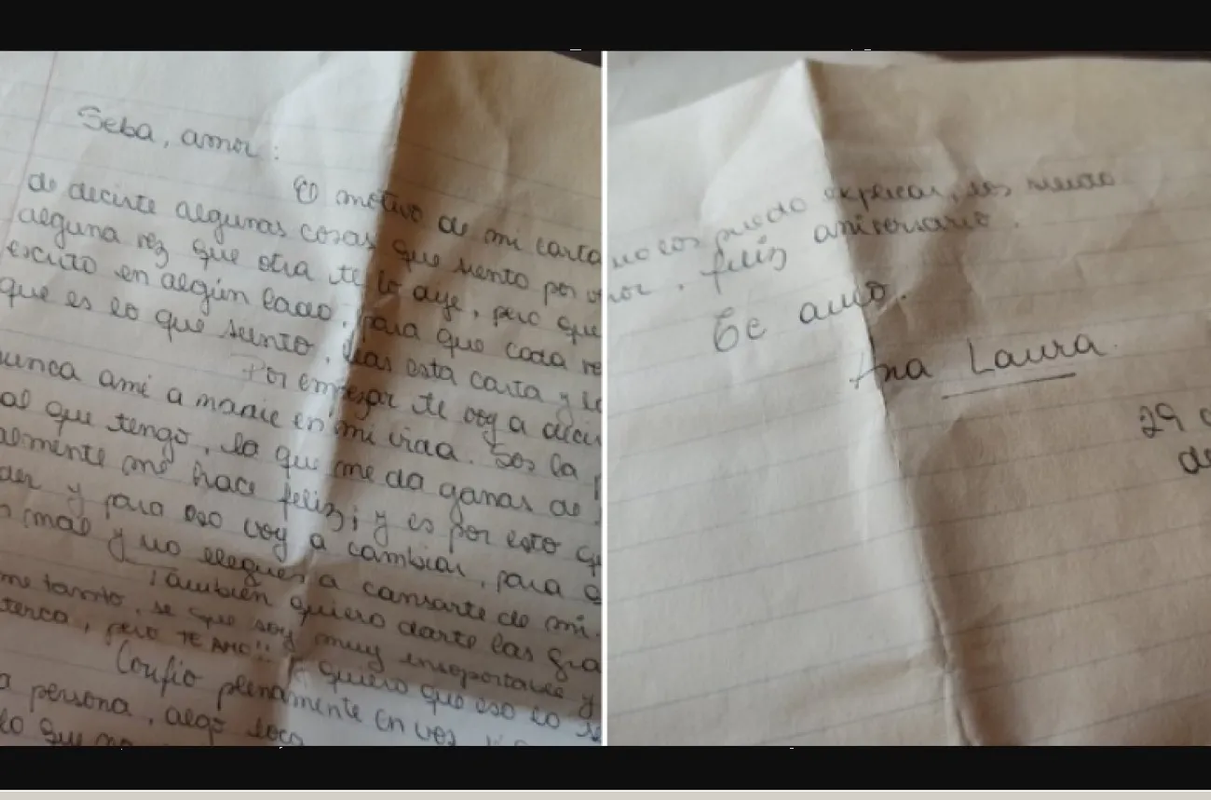 Seba, amor:
El motivo de mi carta
de decirte algunas cosas que siento por
alguna vez que otra te lo dije, pero que
escrito en algún lado, para que cada
que es lo que siento, leas esta carta y
Por empezar te voy a decir
nunca amé a nadie en mi vida. Sos la
que tengo, la que me da ganas de
me hace feliz; y es por esto
y para eso voy a cambiar, para
mal y no llegues a cansarte de mi.
También quiero darte las
tanto, se que soy muy insoportable y
terca, pero TE AMO!! Y quiero que eso lo
Confio plenamente en vos
persona, algo loca
lo que no
no los puedo explicar, sos
feliz aniversario.
Te amo.
Ana Laura.
29
de